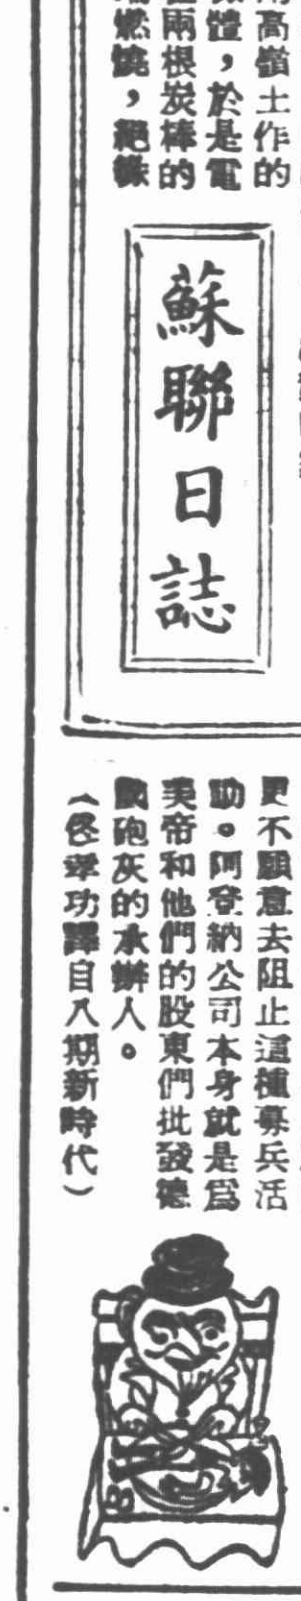 高嶺土作的
體，於是電
兩根炭棒的
燃燒，絕緣
蘇聯日誌
更不願意去阻止這種募兵活
助。阿登納公司本身就是爲
美帝和他們的股東們批發德
國砲灰的承辦人。
（佟孝功譯自八期新時代）